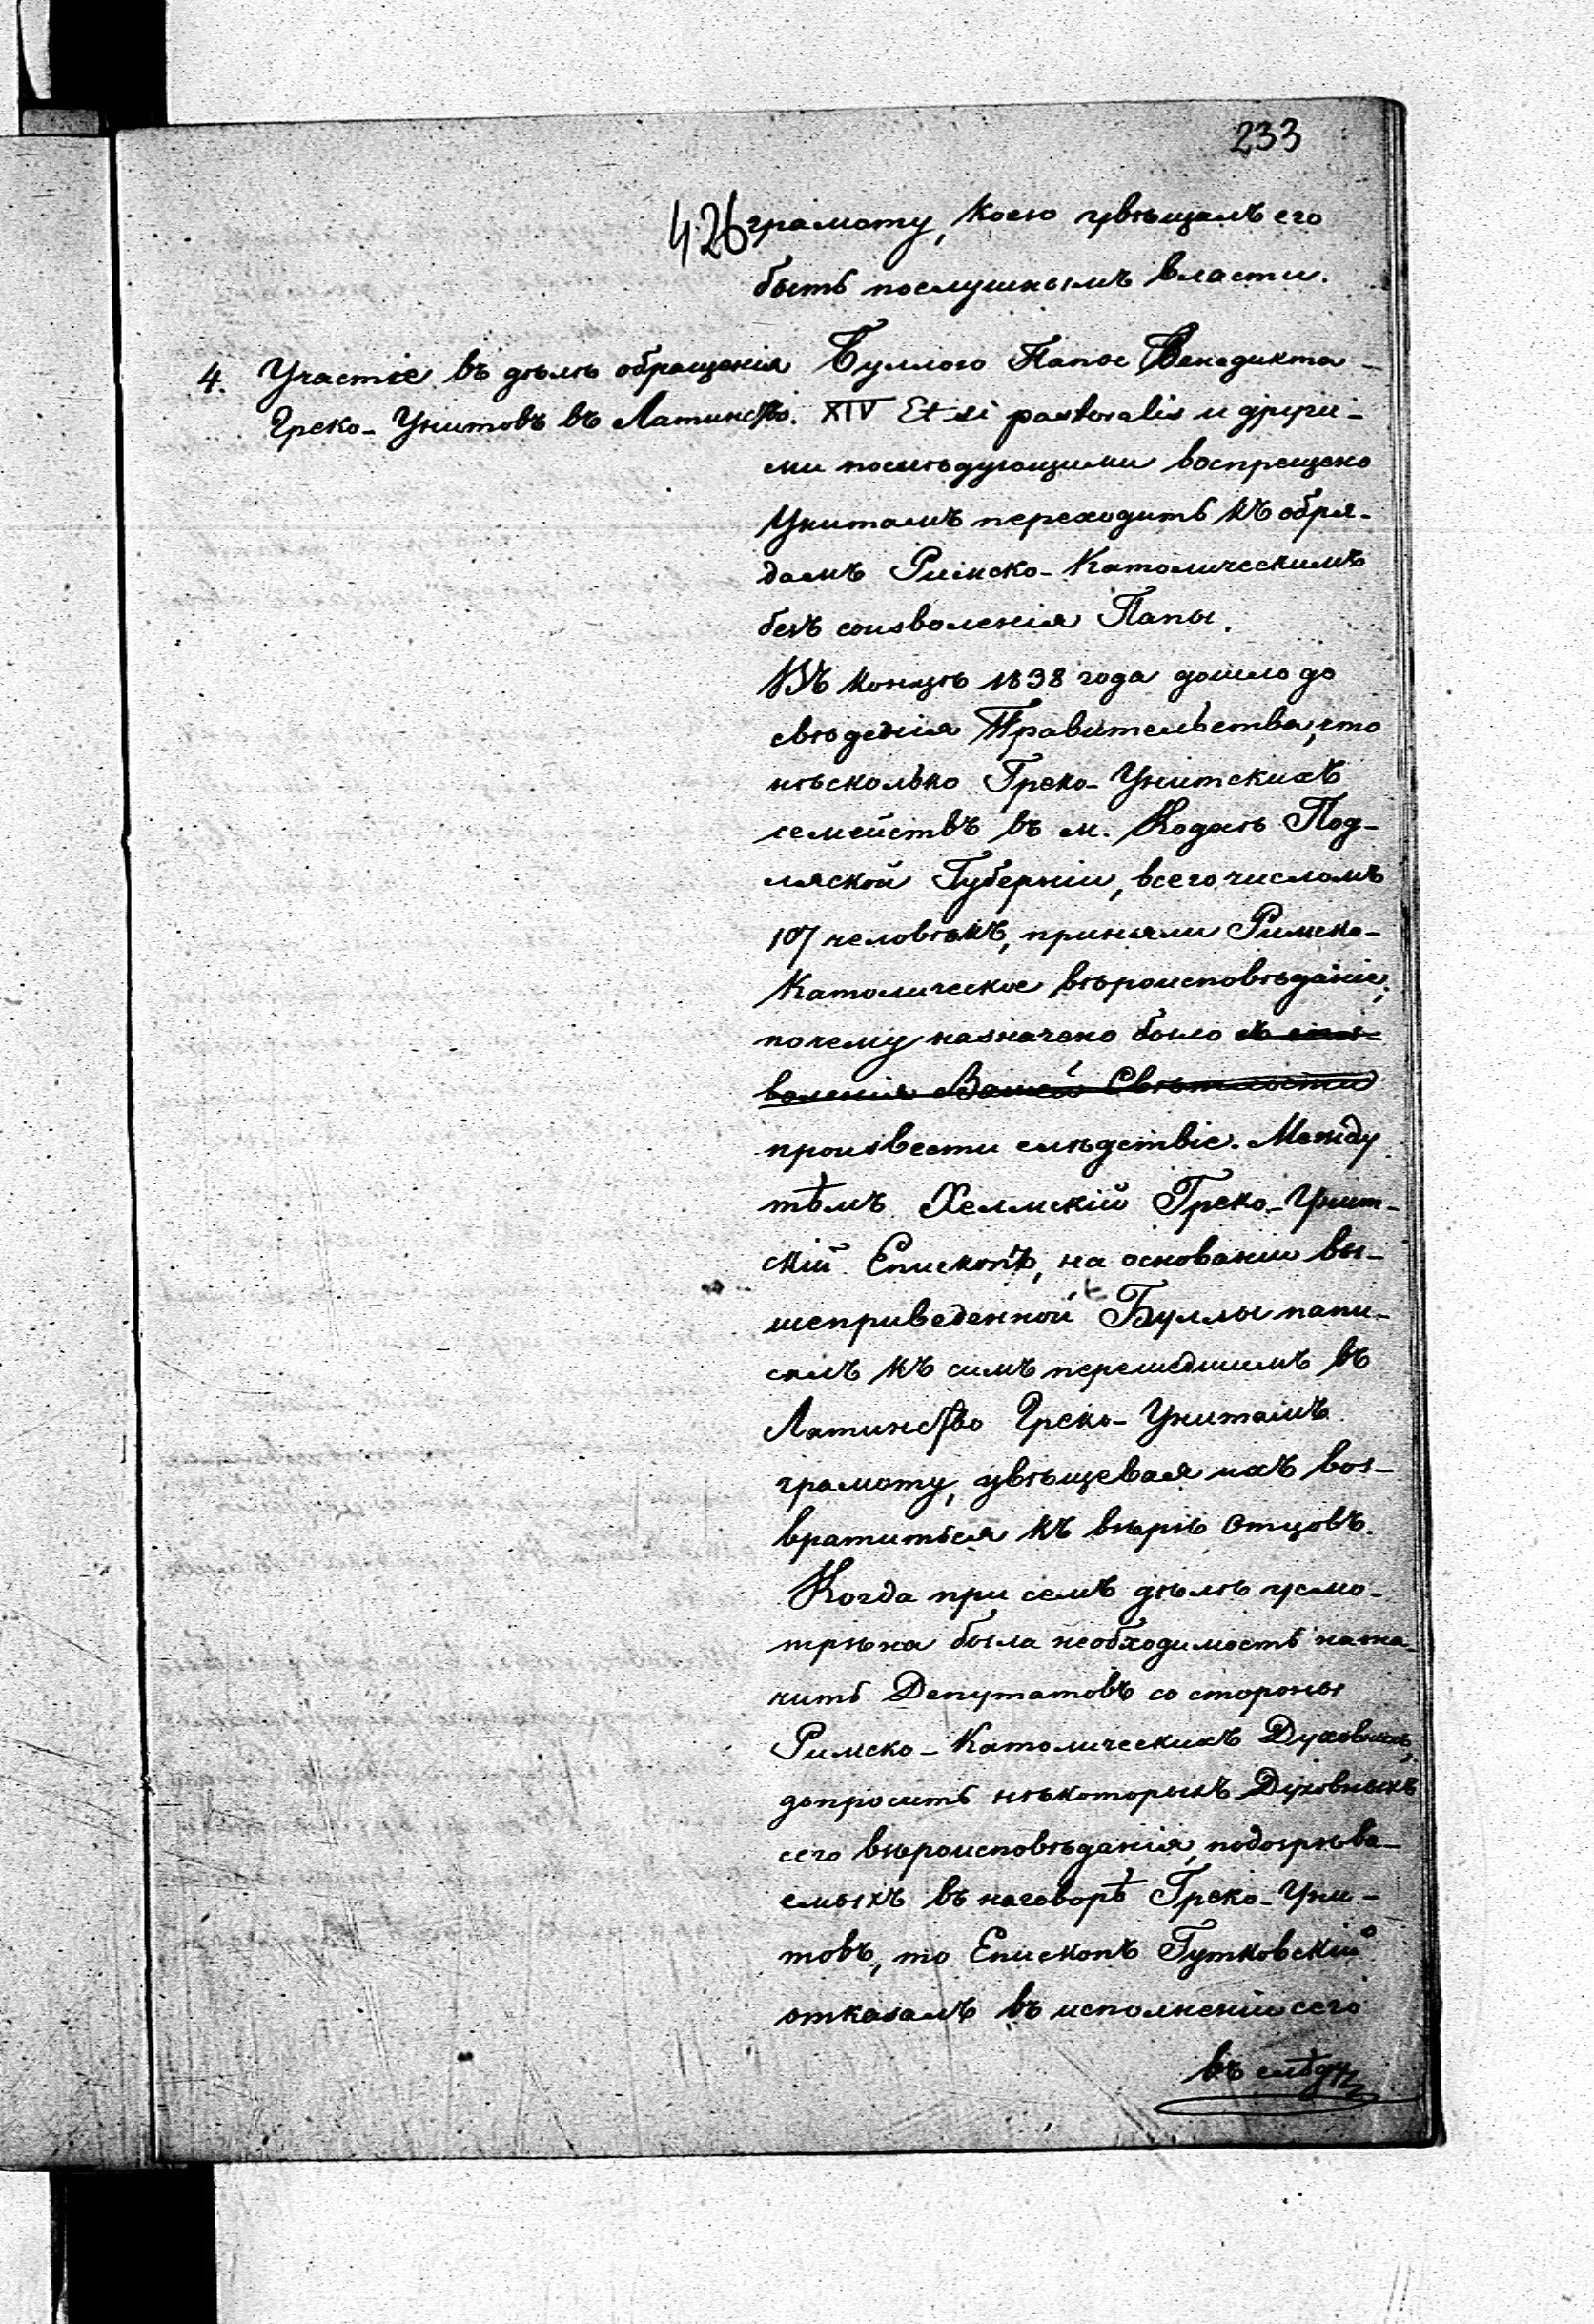 233
426
грамоту, коею увѣщалъ его
быть послушнымъ власти.
4. Участіе въ дѣлѣ обращенія
Греко-Унитовъ въ Латинство.
Буллою Папы Венедикта
XIV Et si pastoralis и други-
ми послѣдующими воспрещено
Унитамъ переходить къ обря-
дамъ Римско-Католическимъ
безъ соизволенія Папы.
Въ концѣ 1838 года дошло до
свѣденія Правительства, что
нѣсколько Греко-Унитскихъ
семействъ въ м. Кодаѣ Под-
ляской Губерніи, всего числомъ
107 человѣкъ, приняли Римско-
Католическое вѣроисповѣданіе;
почему назначено было съ соиз-
воленія Вашей Свѣтлости
произвести слѣдствіе. Между
тѣмъ Хелмскій Греко-Унит-
скій Епископъ, на основаніи вы-
шеприведенной Буллы напи-
салъ къ симъ перешедшимъ въ
Латинство Греко-Унитамъ
грамоту, увѣщевая ихъ воз-
вратиться къ вѣрѣ отцовъ.
Когда при семъ дѣлѣ усмо-
трѣна была необходимость назна-
чить Депутатовъ со стороны
Римско-Католическихъ Духовныхъ,
допросить нѣкоторыхъ Духовныхъ
сего вѣроисповѣданія, подозрѣва-
емыхъ въ наговорѣ Греко-Уни-
товъ, то Епископъ Гутковскій
отказалъ въ исполненіи сего
въ слѣду